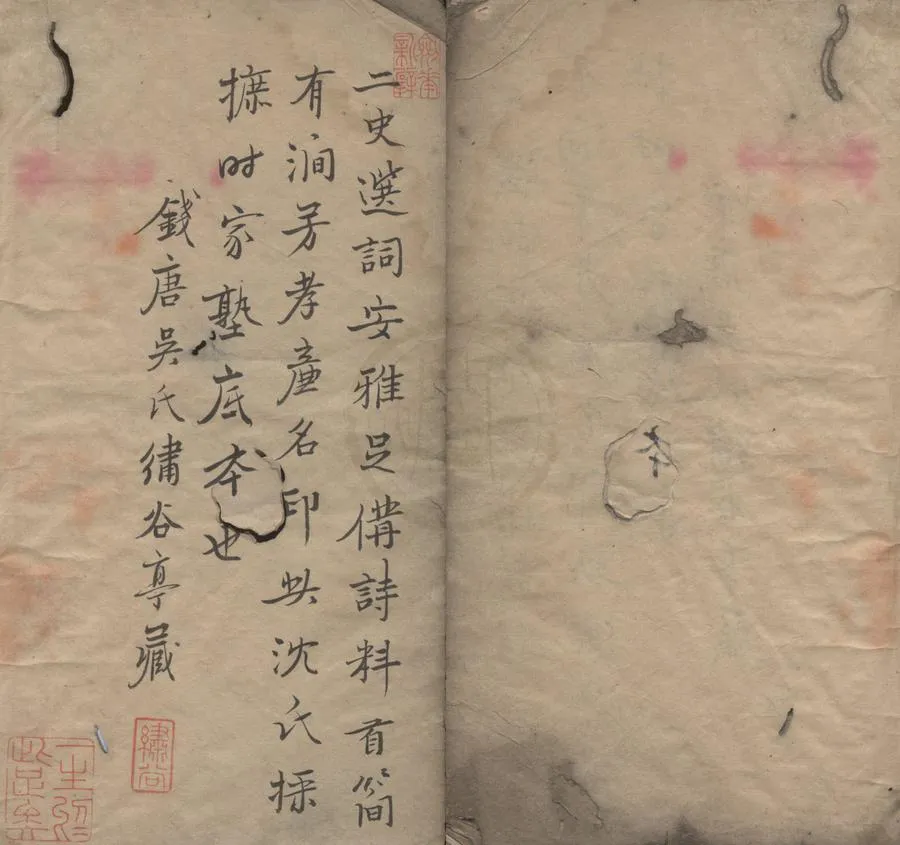 二史選詞安雅足備詩料首簡
有澗芳孝廉名印此沈氏採
摭时家塾底本也
錢唐吳氏繡谷亭藏
繡谷